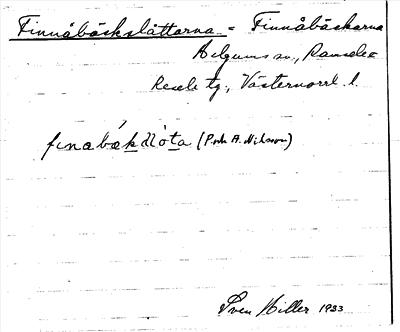 Finnåbäckslåttarna = Finnåbäckarna
Helgums sn., Ramsele =
Resele tg., Västernorrl. l.
(P. A. Nilsson)
Sven Hiller 1933